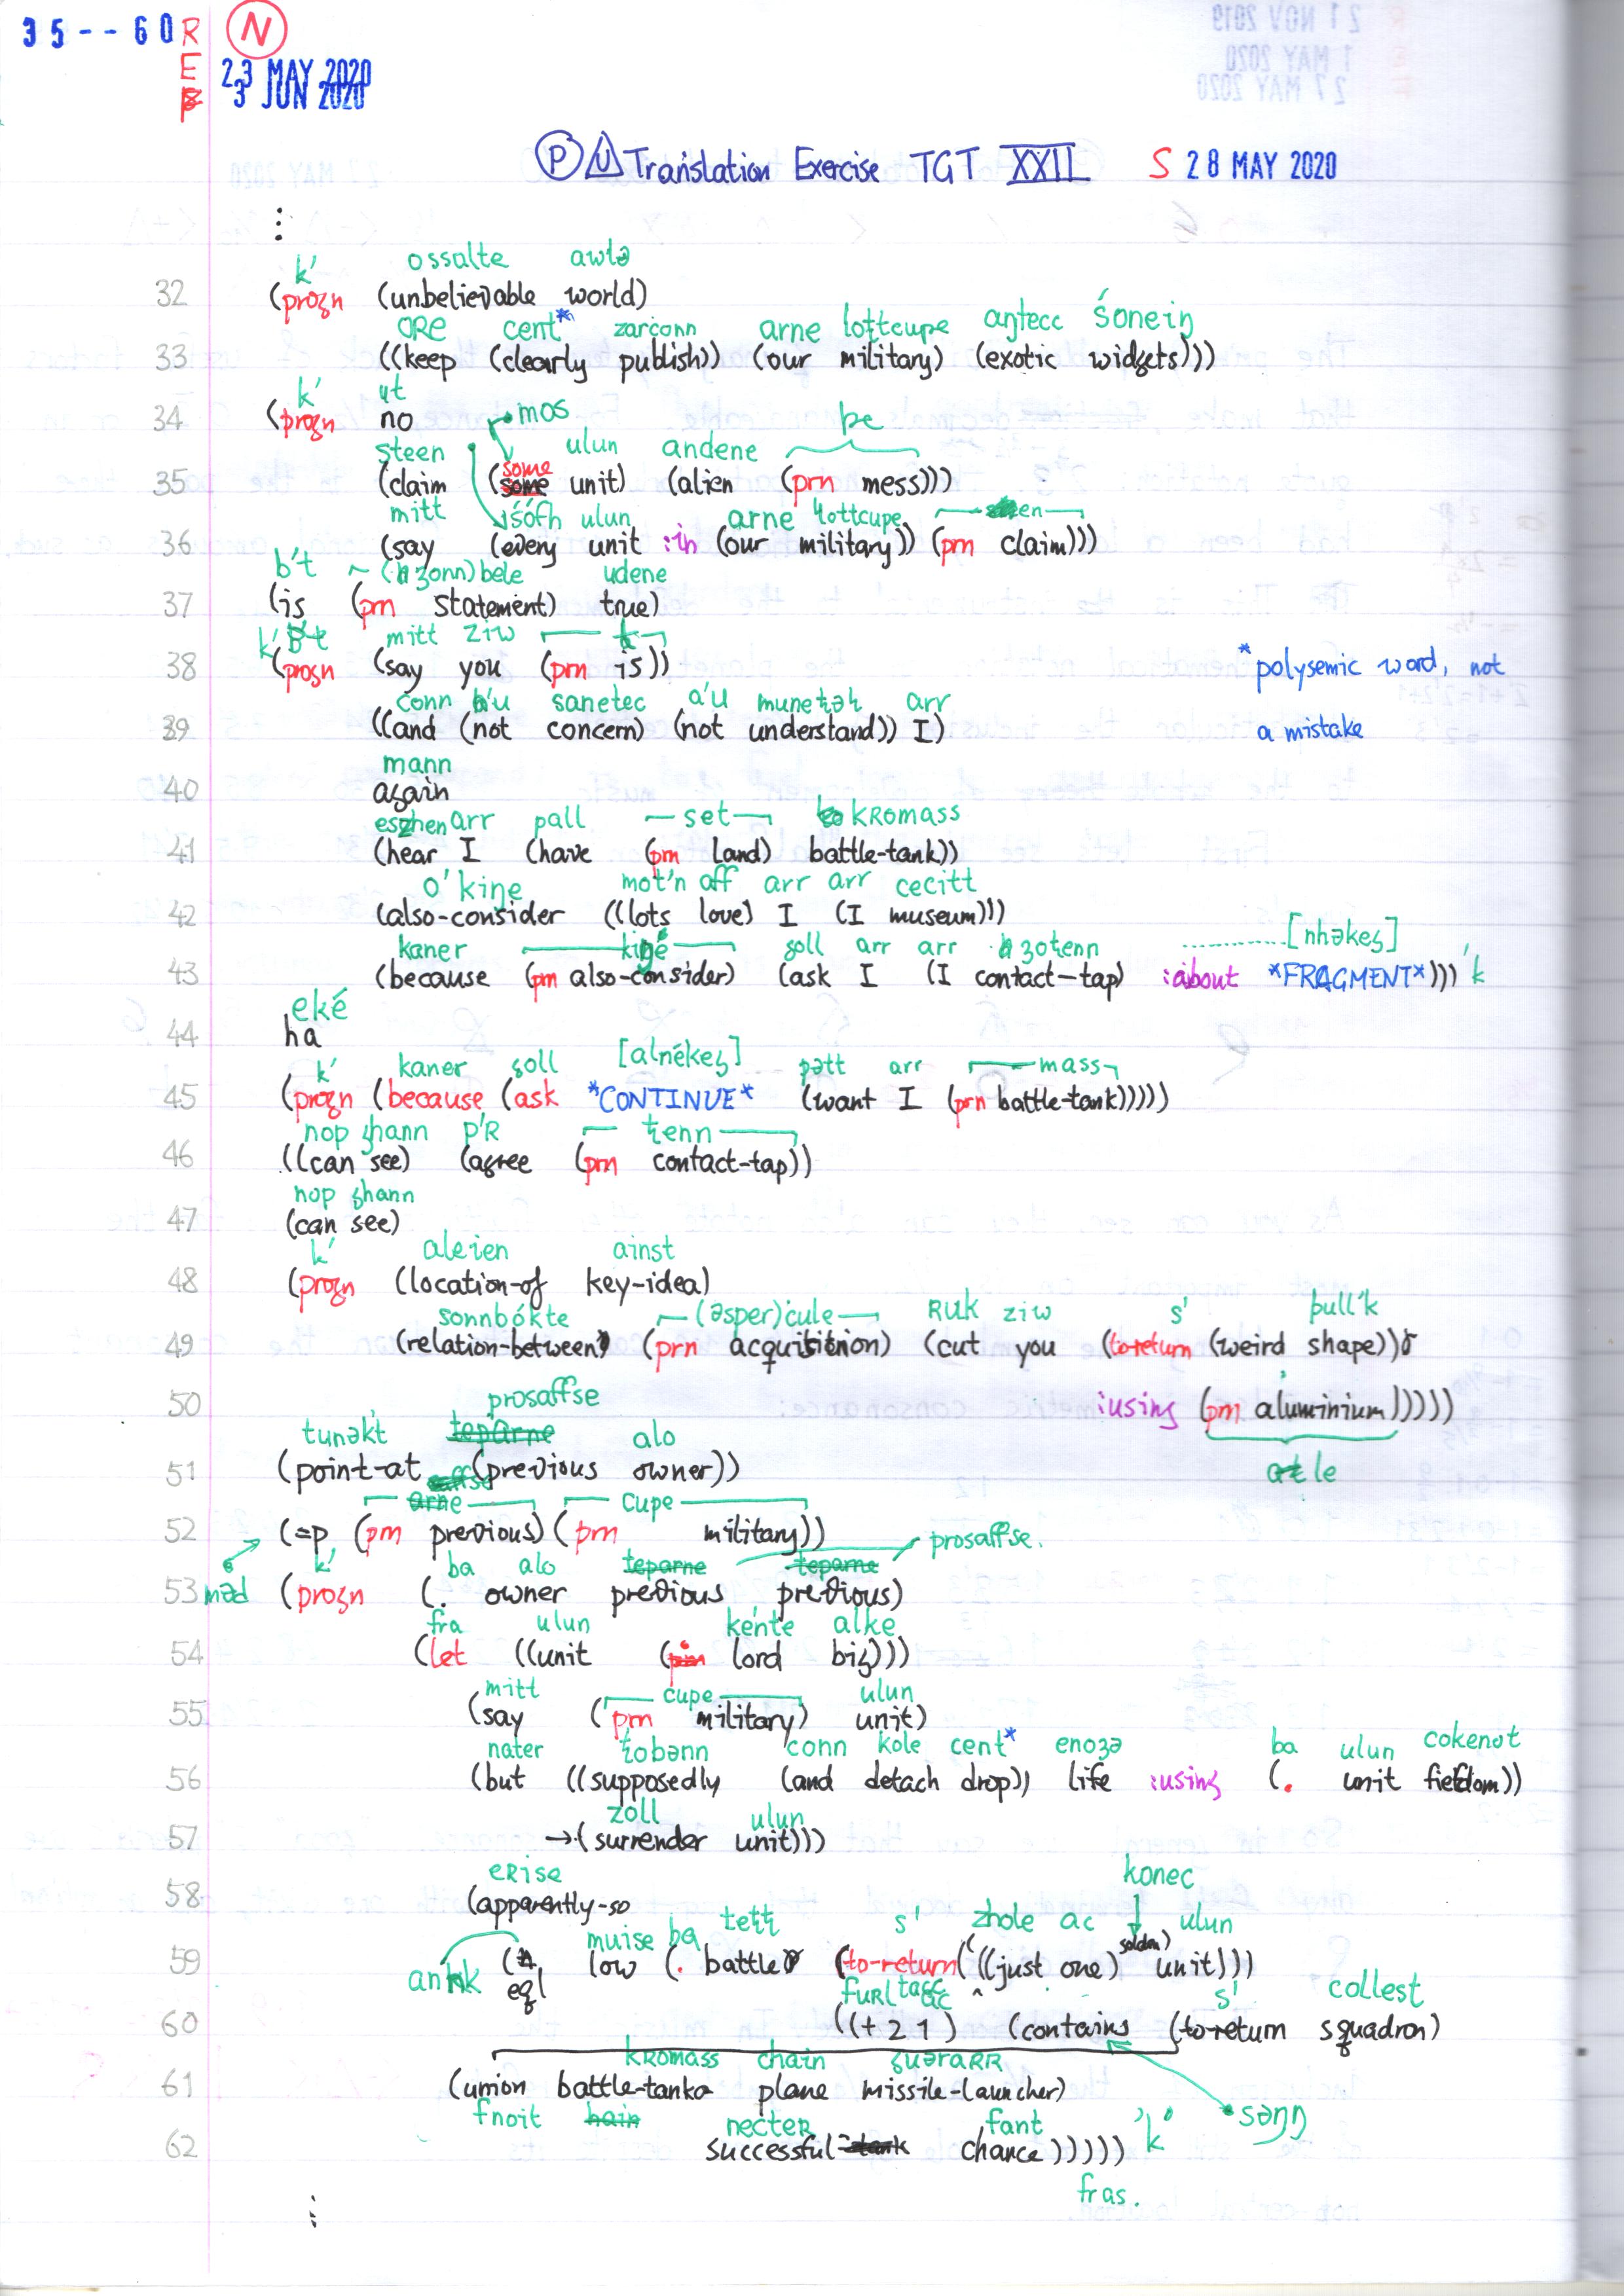 35--60 R (N)
E
P
23 MAY 2020
3 JUN 2020
(P) U Translation Exercise TGT XXII S 28 MAY 2020
⋮
k' ossalte awlə
32 (progn (unbelievable world)
ORE cent* zarconn arne lottcupe aŋtecc śoneiŋ
33 ((keep (clearly publish)) (our military) (exotic widgets)))
k' ut
34 (progn no
mos
steen ulun andene be
35 (claim (some unit) (alien (prn mess)))
mitt śófh ulun arne lottcupe steen
36 (say (every unit :in (our military)) (prn claim)))
b't bele udene
37 (is (prn statement) true)
k' mitt ziw t
38 (progn (say you (prn is))
*polysemic word, not
conn b'u sanetec a'u munetəh arr
39 ((and (not concern) (not understand)) I)
a mistake
mann
40 again
eszhen arr pall set kRomass
41 (hear I (have (prn land) battle-tank))
o'kiŋe mot'n aff arr arr cecitt
42 (also-consider ((lots love) I (I museum)))
kaner kiŋé soll arr arr [nhəkes] 'k
43 (because (prn also-consider) (ask I (I contact-tap) :about *FRAGMENT*)))
eké
44 ha
k' kaner soll [alnékes] pətt arr mass
45 (progn (because (ask *CONTINUE* (want I (prn battle-tank)))))
nop zhann p'R tenn
46 ((can see) (agree (prn contact-tap))
nop zhann
47 (can see)
k' aleien ainst
48 (progn (location-of key-idea)
sonnbókte (əsper)cule Ruk ziw s' pull'k
49 (relation-between (prn acquisition) (cut you (to-return (weird shape))
50 :using (prn aluminium)))))
le
prosaffse
tunəkt alo
51 (point-at (previous owner))
cupe
52 (=p (prn previous) (prn military))
məd
prosaffse.
k' ba alo
53 (progn (. owner previous previous)
fra ulun kénte alke
54 (let ((unit (lord big)))
mitt cupe ulun
55 (say (prn military) unit)
nater tobənn conn kole cent* enozə ba ulun cokenot
56 (but ((supposedly (and detach drop)) life :using (. unit fiefdom))
zoll ulun
57 →(surrender unit)))
eRise
58 (apparently-so
konec
muise ba tett s' zhole ac ulun
59 (eql low (. battle (to-return (((just one) soldon) unit)))
fuRl tacc s' collest
60 ((+ 2 1) (contains (to-return squadron)
kRomass chain
61 (union battle-tank plane missile-launcher)
fnoit necteR fant 'k' səŋŋ
62 successful chance)))))
fras.
⋮